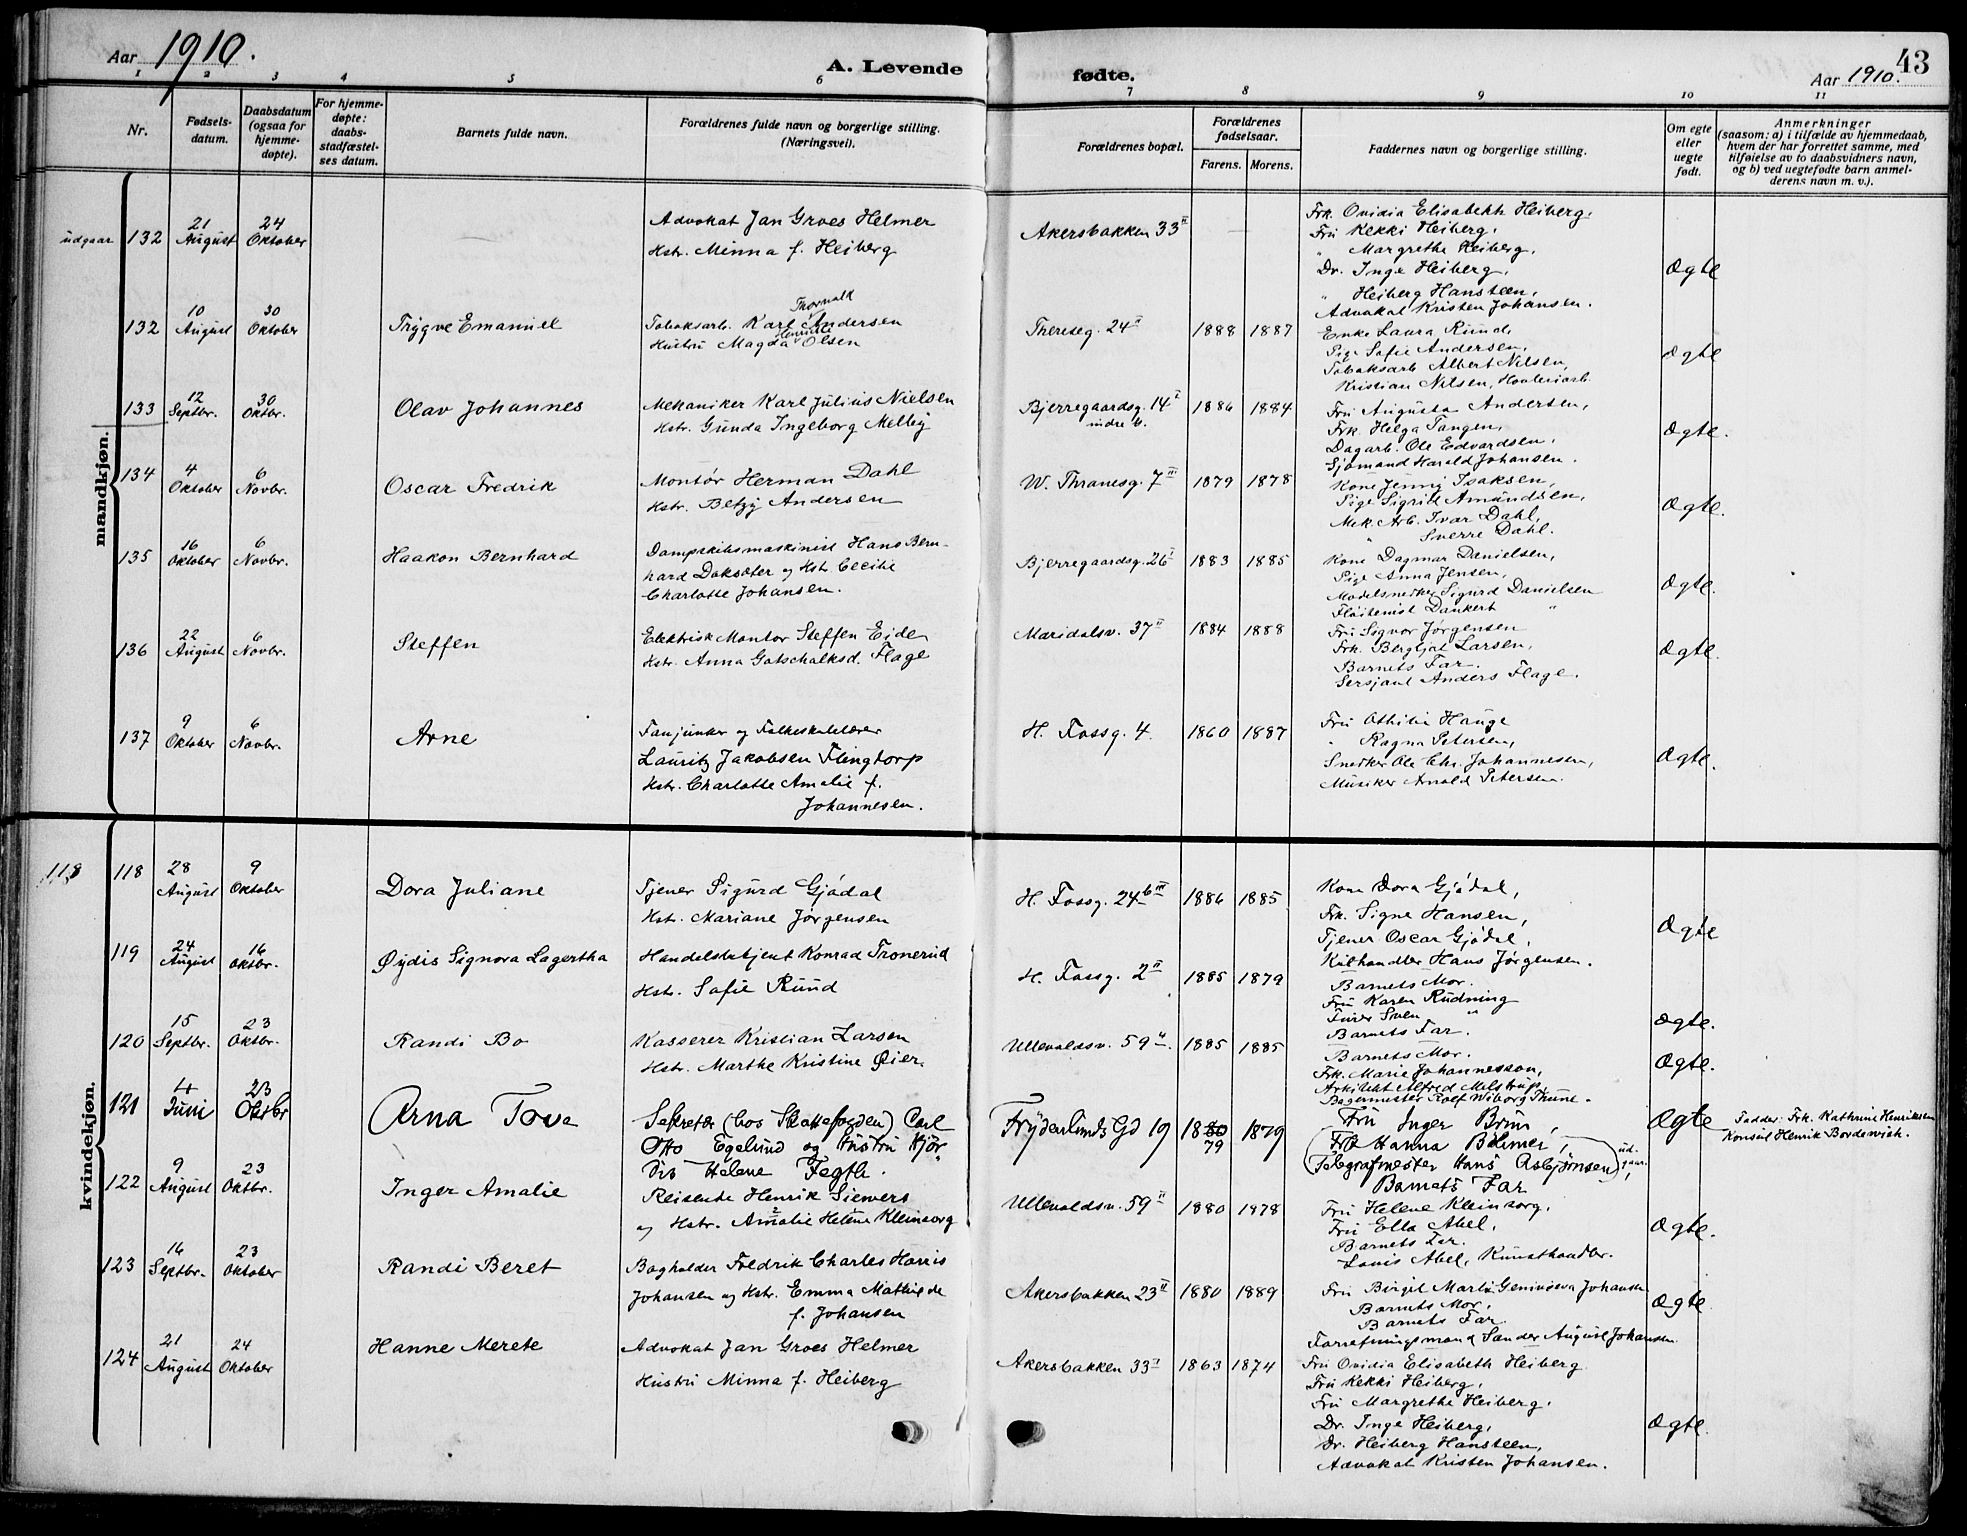 Aar 1910.
A. Levende
fødte.
Aar 1910.
43
1 2 3 4 5 6 7 8 9 10 11
Nr.
Fødsels-
datum.
Daabsdatum
(ogsaa for
hjemme-
døpte).
For hjemme-
døpte:
daabs-
stadfæstel-
ses datum.
Barnets fulde navn.
Forældrenes fulde navn og borgerlige stilling.
(Næringsvei).
Forældrenes bopæl.
Forældrenes
fødselsaar.
Farens. Morens.
Faddernes navn og borgerlige stilling.
Om egte
eller
uegte
født.
Anmerkninger
(saasom: a) i tilfælde av hjemmedaab,
hvem der har forrettet samme, med
tilføielse av to daabsvidners navn,
og b) ved uegtefødte barn anmel-
derens navn m. v.).
mandkjøn.
udgaar 132 21 August 24 Oktober —
Advokat Jan Groes Helmer
Hstr. Minna f. Heiberg
Akersbakken 33 II — —
Frk. Ovidia Elisabeth Heiberg,
Fru Kekki Heiberg,
" Margrethe Heiberg,
Dr. Inge Heiberg,
" Heiberg Hansteen,
Advokat Kristen Johansen.
Ægte
132 10 August 30 Oktober Trygve Emanuel
Thorvald
Tobaksarb. Karl Andersen
Hustru Magda Olsen
Thereseg. 24 II 1888 1887
Enke Laura Ruud,
Pige Sofie Andersen,
Tobaksarb Albert Nilsen,
Kristian Nilsen,
Ægte
133 12 Septbr. 30 Oktbr. Olav Johannes
Mekaniker Karl Julius Nielsen
Hstr. Gunda Ingeborg Melby
Bjerregaardsg. 14 I
indre b.
1886 1884
Fru Augusta Andersen,
Frk. Helga Tangen,
Dagarb. Ole Edvardsen,
Sjømand Harald Johansen.
Ægte.
134 4 Oktober 6 Novbr. Oscar Fredrik
Montør Herman Dahl
Hstr. Betzy Andersen
W. Thranesg. 7 III 1879 1878
Kone Jenny Isaksen,
Pige Sigrid Amundsen,
Mek. Arb. Ivar Dahl,
" Sverre Dahl.
Ægte.
135 16 Oktober 6 Novbr. Haakon Bernhard
Dampskibsmaskinist Hans Bern-
hard Doksæter og Hstr Cecilie
Charlotte Johansen.
Bjerregaardsg. 26 I 1883 1885
Kone Dagmar Danielsen,
Pige Anna Jensen,
Modelsnedker Sigurd Danielsen
Fløitenist Dankert "
Ægte.
136 22 August 6 Novbr. Steffen
Elektrisk Montør Steffen Eide
Hstr. Anna Gotschalksd. Flage
Maridalsv. 37 II 1884 1888
Fru Signor Jørgensen
Frk. Bergljot Larsen,
Barnets Far.
Sersjant Anders Flage.
Ægte.
137 9 Oktober 6 Novbr. Arne
Fanjunker og Folkeskolelærer
Lauritz Jakobsen Flingtorp
Hstr. Charlotte Amalie f.
Johannesen.
H. Fossg. 4. 1860 1887
Fru Othilie Hauge
" Ragna Petersen,
Snedker Ole Chr. Johannesen,
Musiker Arnold Petersen.
Ægte.
kvindekjøn.
118 118 28 August 9 Oktober Dora Juliane
Tjener Sigurd Gjødal
Hstr. Mariane Jørgensen
H. Fossg. 24 b III 1886 1885
Kone Dora Gjødal,
Frk. Signe Hansen,
Tjener Oscar Gjødal,
Kulhandler Hans Jørgensen.
Ægte
119 24 August 16 Oktbr. Øydis Signora Lagertha
Handelsbetjent Konrad Tronerud
Hstr. Sofie Ruud
H. Fossg. 2 II 1885 1879
Barnets Mor.
Fru Karen Rudning
Furer Sven "
Barnets Far.
Ægte.
120 15 Septbr. 23 Oktbr. Randi Bo
Kasserer Kristian Larsen
Hstr. Marthe Kristine Øier.
Ullevoldsv. 59 II. 1885 1885
Barnets Mor.
Frk. Marie Johannesson,
Arkitekt Alfred Milstrup,
Bagermester Rolf Wiborg Thune.
Ægte.
121 4 Juni 23 Oktbr Arna Tove
Sekretær (hos Skattefogden) Carl
Otto Egelund og Hustru Hjør-
dis Helene Fegth.
Frydenlunds Gd 19 1880 79 1879
Fru Inger Brun,
Frk Hanna Böhmer,
(Telegrafmester Hans Asbjørnsen) udgaar,
Barnets Far
Ægte
Fadder: Frk. Kathrine Henriksen
Konsul Henrik Bordewich.
122 9 August 23 Oktbr. Inger Amalie
Reisende Henrik Siewers
og Hstr. Amalie Helene Kleinsorg
Ullevoldsv. 59 II 1880 1878
Fru Helene Kleinsorg,
Fru Ella Abel,
Barnets Far.
Louis Abel, Kunsthandlr.
Ægte.
123 16 Septbr. 23 Oktober Randi Beret
Bogholder Fredrik Charles Harris
Johansen og Hstr. Emma Mathilde
f. Johansen
Akersbakken 23 II 1880 1889
Fru Birgit Marli Genivieva Johansen
Barnets Mor,
Barnets Far.
Forretningsmand Sander August Johansen
Ægte
124 21 August 24 Oktober Hanne Merete
Advokat Jan Groes Helmer
Hustru Minna f. Heiberg
Akersbakken 33 II 1863 1874
Fru Ovidia Elisabeth Heiberg
Fru Kekki Heiberg,
Fru Margrethe Heiberg,
Dr. Inge Heiberg,
Dr. Heiberg Hansteen,
Advokat Kristen Johansen.
Ægte